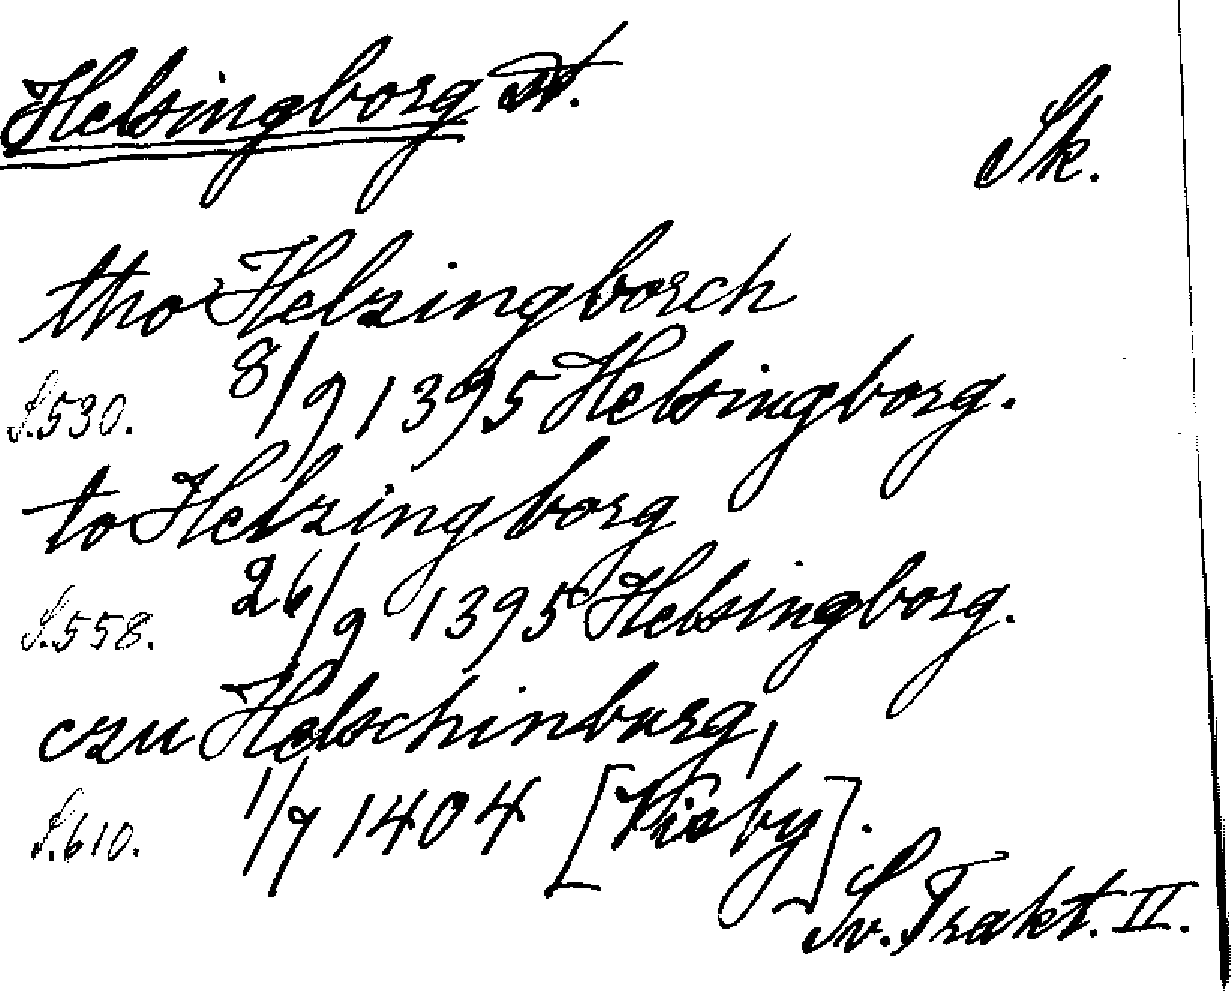 Helsingborg st.
Sk.
tho Helzingborch
S.530. 8/9 1395 Helsingborg.
to Helzingborg
S.558. 26/9 1395 Helsingborg.
czu Helschinburg,
S.610. 1/7 1404 [Visby].
Sv. Trakt. II.